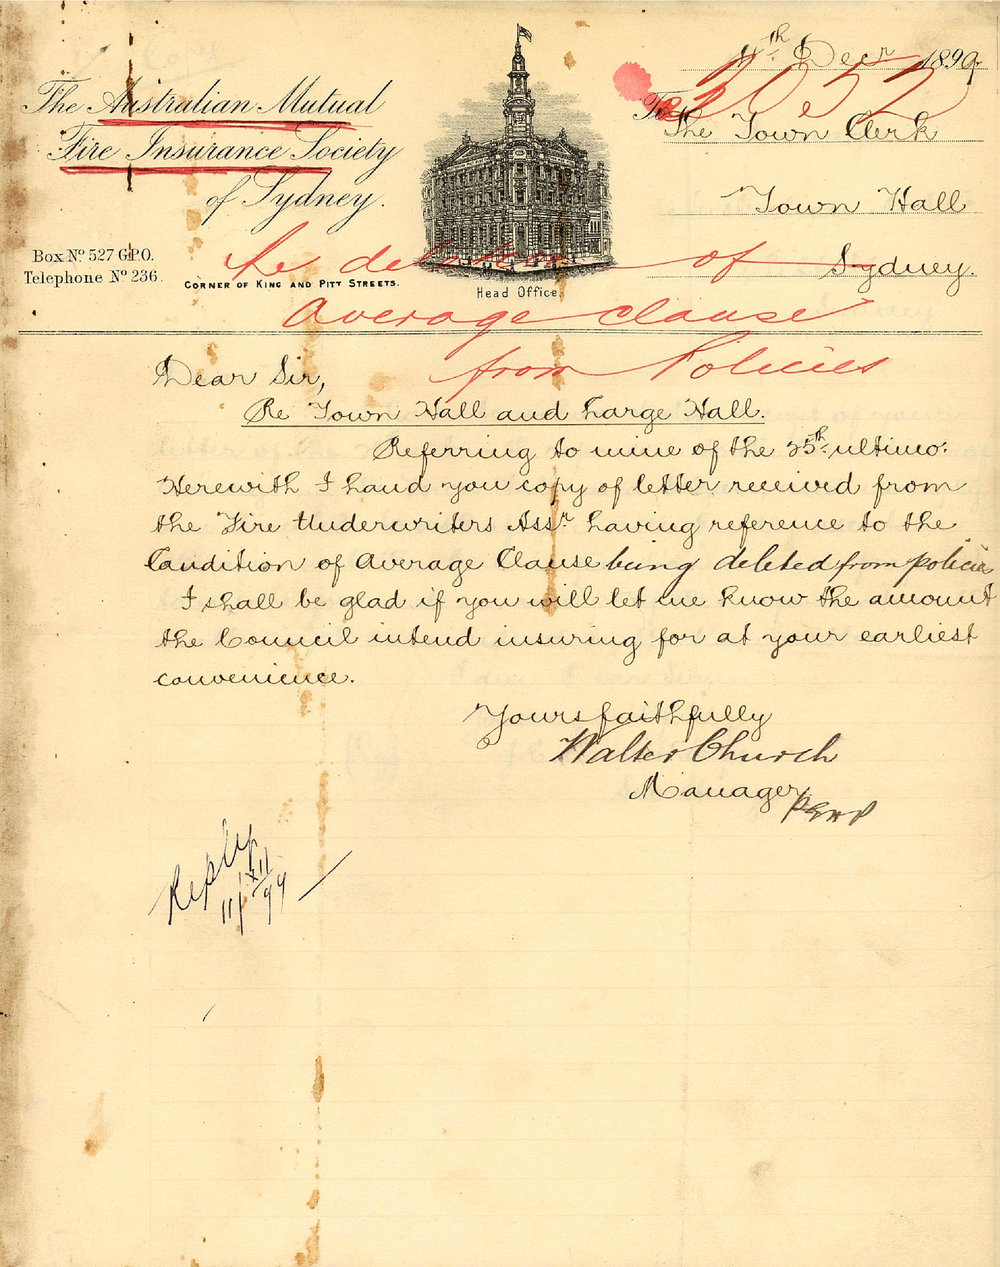 The Australian Mutual
Fire Insurance Society
of Sydney.
Box Nº 527 G.P.O.
Telephone Nº 236.
Corner of King and Pitt Streets.
Head Office.
th Decr 1899
To
The Town Clerk
Town Hall
Sydney.
re deletion of
average clause
from Policies
Dear Sir,
Re Town Hall and Large Hall.
Referring to mine of the 25th ultimo.
Herewith I hand you copy of letter received from
the Fire Underwriters Assn. having reference to the
Condition of Average Clause being deleted from policie
I shall be glad if you will let me know the amount
the Council intend insuring for at your earliest
convenience.
Yours faithfully
Walter Church
Manager
Reply
11/XII/99